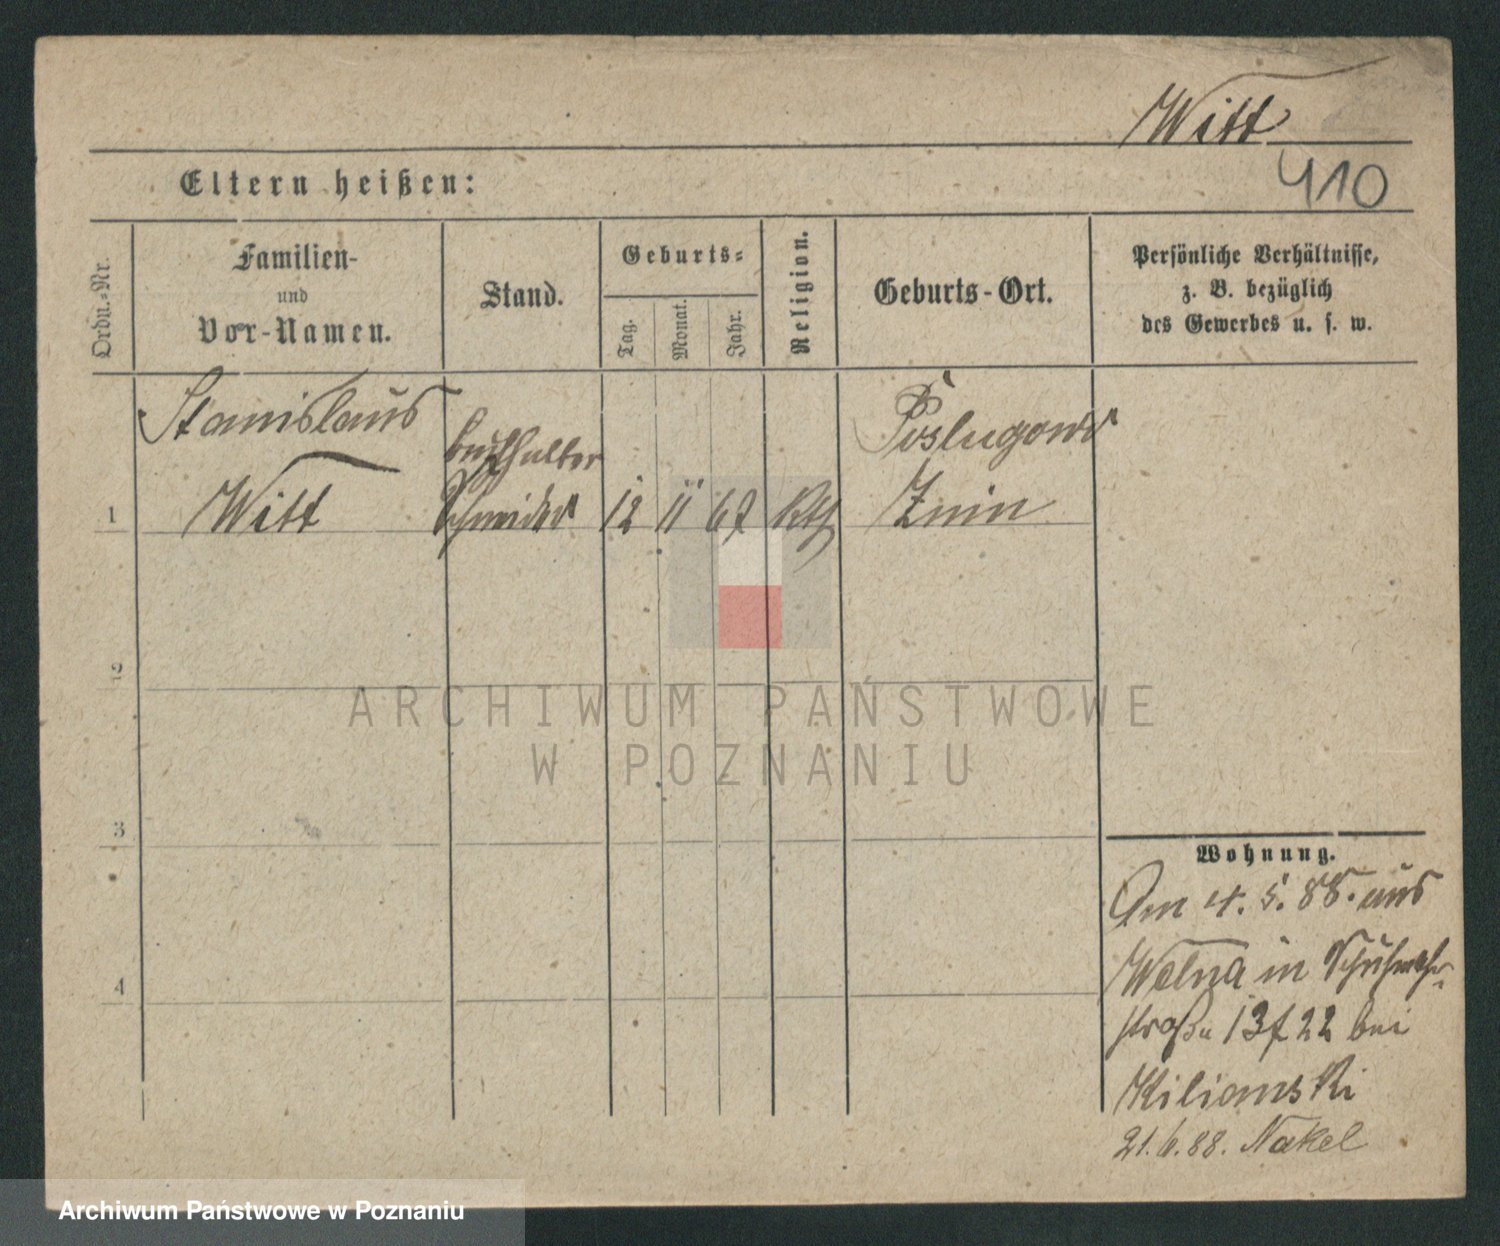 Witt
410
Eltern heißen:
Ordn.-Nr.
Familien-
und
Vor-Namen.
Stand.
Geburts-
Tag.
Monat.
Jahr.
Religion.
Geburts-Ort.
Persönliche Verhältnisse,
z. B. bezüglich
des Gewerbes u. s. w.
Stanislaus
Witt
Schneider
1
12 11 67 Kth
Znin
2
3
4
Wohnung.
Am 4. 5. 88. aus
Welna in Schuhmchr-
straße 13 f 22 bei
Kilianski
21. 6. 88. Nakel
ARCHIWUM PAŃSTWOWE
W POZNANIU
Archiwum Państwowe w Poznaniu